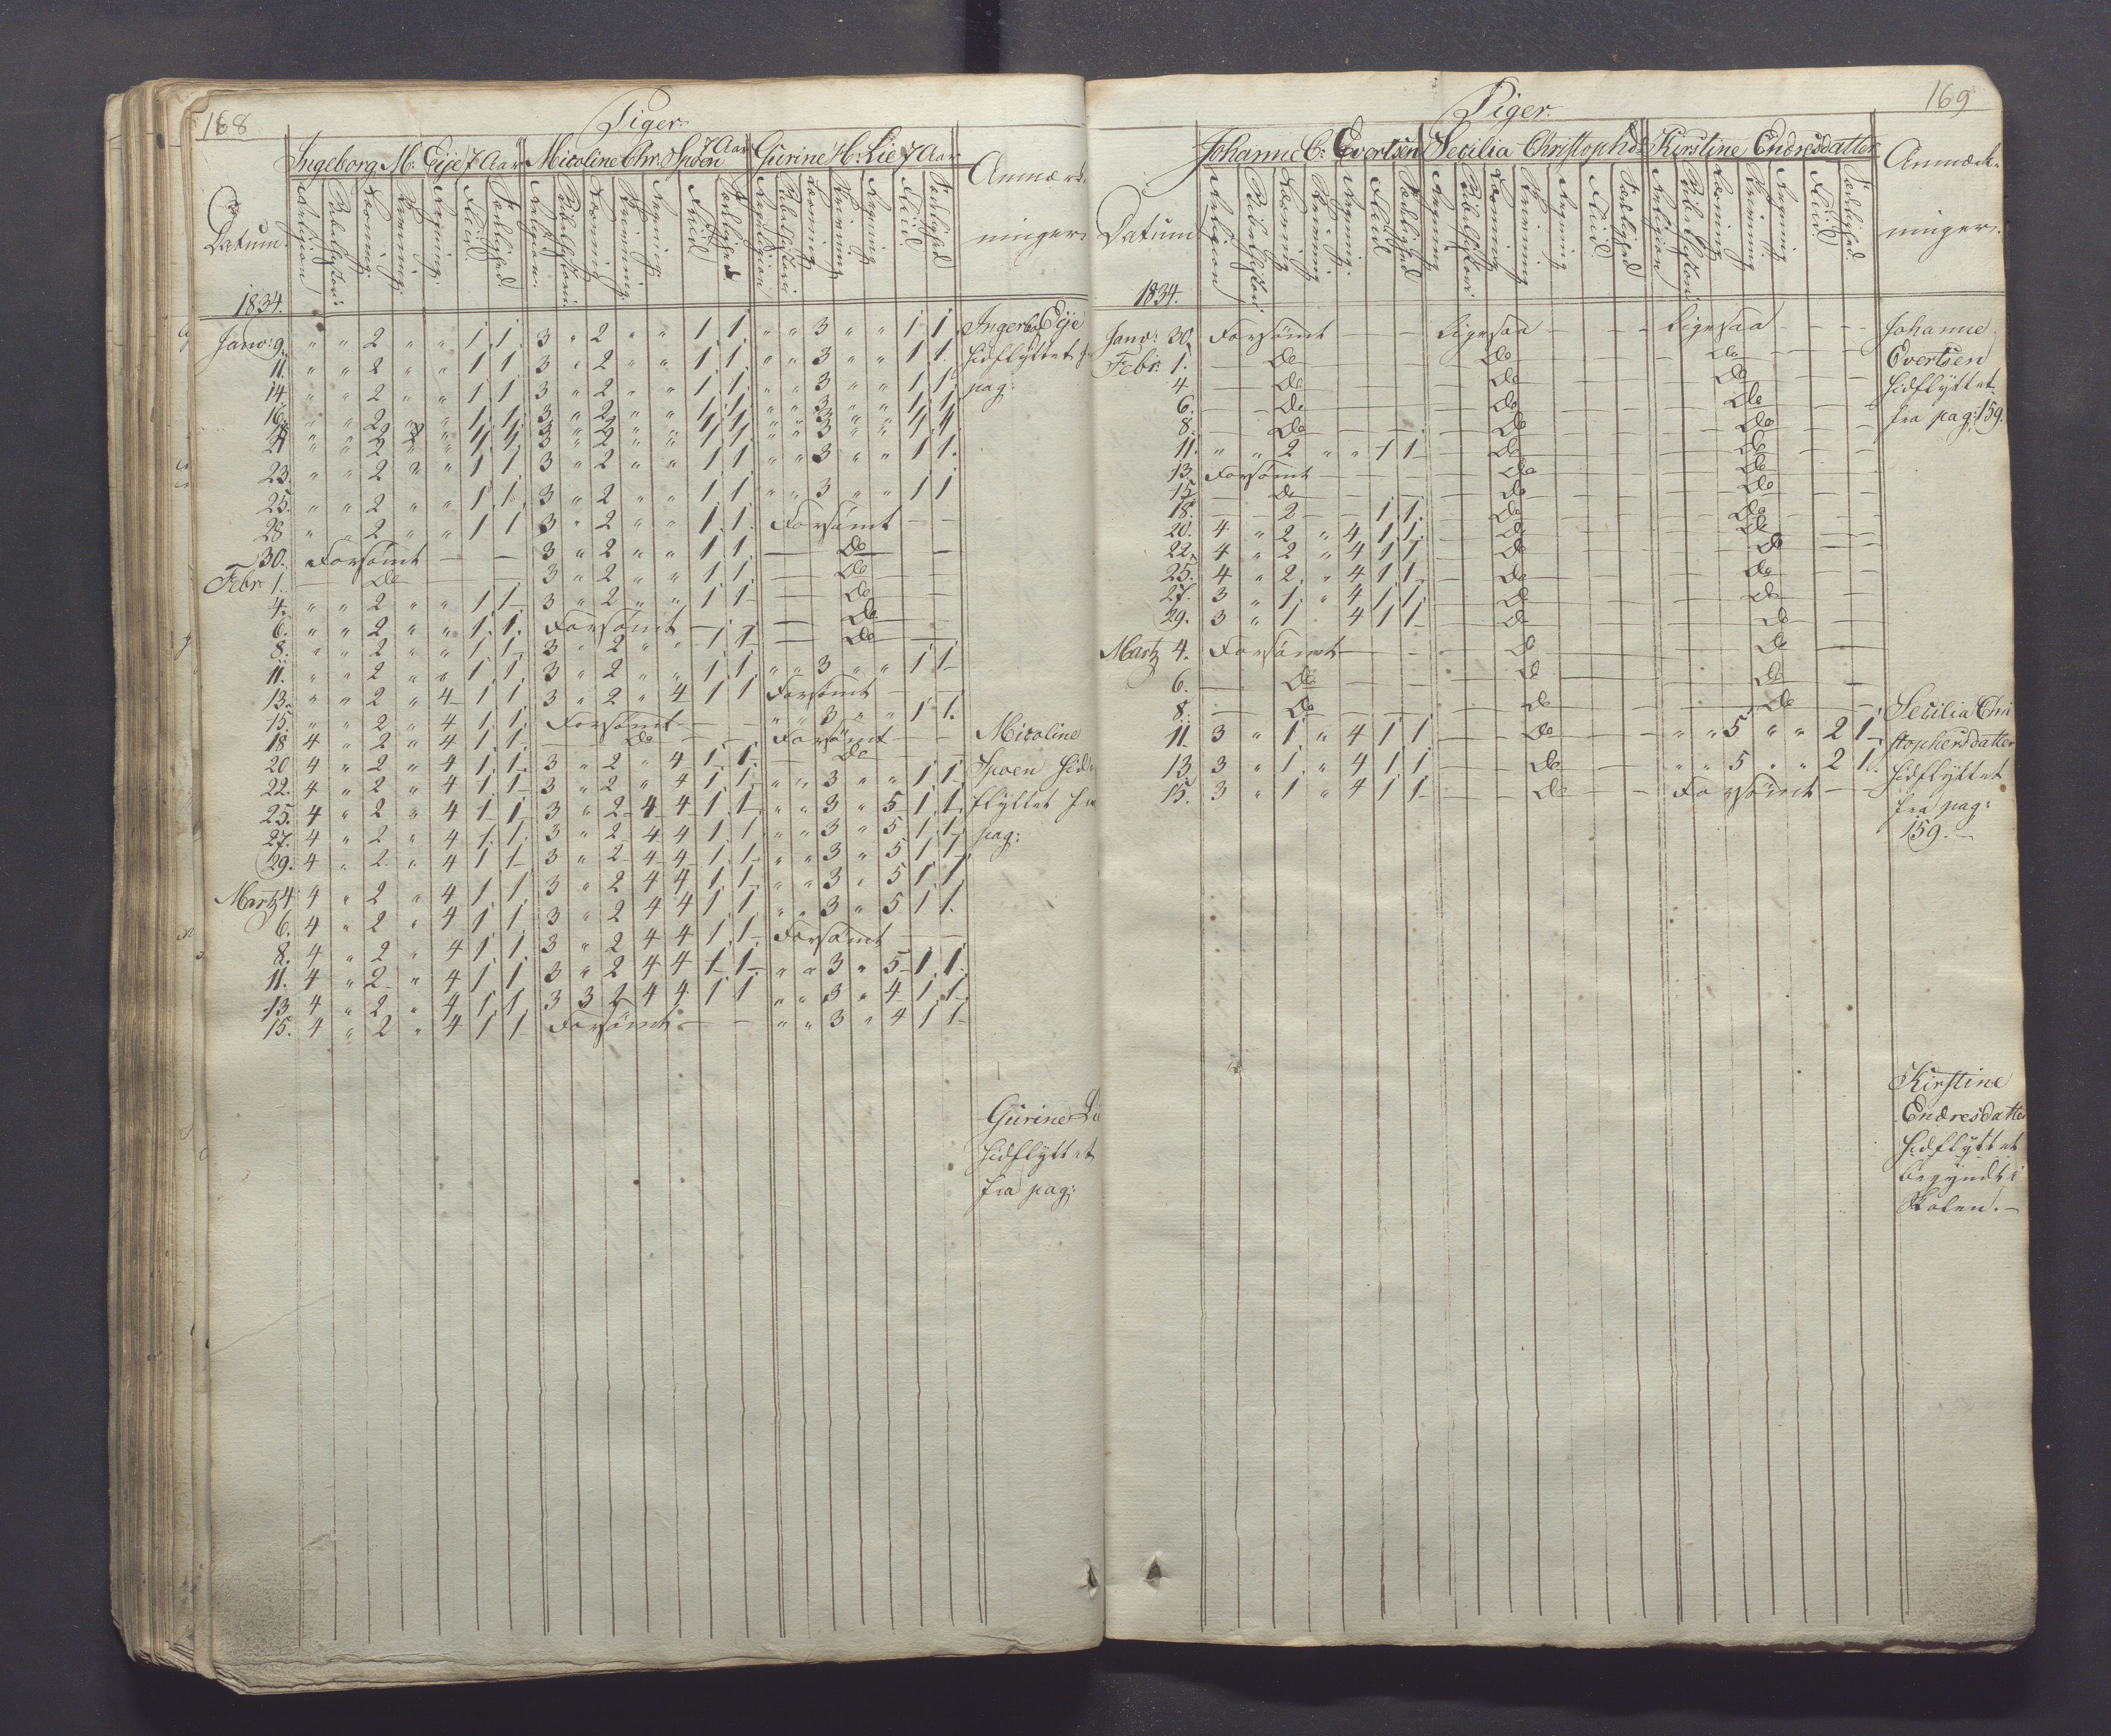 168
Piger.
Ingeborg M: Eije 7 Aar Nicoline Chr. Spoen 7 Aar Gurine H: Lie 7 Aar Anmærk-
ninger.
Datum. Religion Bibelhistori: Læsning. Skrivning. Regning. Fliid Sædelighed. Religion. Bibelhistorie Læsning Skrivning. Regning. Fliid Sædelighed Religion Bibelhistori Læsning Skrivning Regning Fliid Sædelighed
1834.
Janv: 9. " " 2 " " 1 1. 3 " 2 " " 1 1. " " 3 " " 1 1.
11. " " 2 " " 1 1 3 " 2 " " 1 1. " " 3 " " 1 1.
14 " " 2 " " 1 1 3 " 2 " " 1 1. " " 3 " " 1 1.
16.
21
23. " " 2 " " 1 1 3 " 2 " " 1 1 " " 3 " " 1 1.
25. " " 2 " " 1 1. 3 " 2 " " 1 1 " " 3 " " 1 1
28 " " 2 " " 1 1 3 " 2 " " 1 1. Forsömt — —
30. Forsömt — — 3 " 2 " " 1 1. — do —
Febr 1. — do — 3 " 2 " " 1 1. — do —
4. " " 2 " " 1 1 3 " 2 " " 1 1 — do —
6. " " 2 " " 1 1. Forsömt — — do —
8. " " 2 " " 1 1 3 " 2 " " 1 1 — do —
11. " " 2 " " 1 1. 3 " 2 " " 1 1 " " 3 " " 1 1
13. " " 2 " 4 1 1 3 " 2 " 4 1 1 Forsömt — —
15. " " 2 " 4 1 1. Forsömt — — " " 3 " " 1 1.
18 4 " 2 " 4 1 1. — do — Forsömt — —
20 4 " 2 " 4 1 1. 3 " 2 " 4 1 1. — do —
22. 4 " 2 " 4 1 1 3 " 2 " 4 1 1. " " 3 " " 1 1
25. 4 " 2 " 4 1 1 3 " 2 4 4 1 1. " " 3 " 5 1 1.
27. 4 " 2 " 4 1 1. 3 " 2 4 4 1 1 " " 3 " 5 1 1
29. 4 " 2 " 4 1 1 3 " 2 4 4 1 1 " " 3 " 5 1 1
Martz 4 4 " 2 " 4 1 1. 3 " 2 4 4 1 1 " " 3 " 5 1 1.
6. 4 " 2 " 4 1 1. 3 " 2 4 4 1 1 " " 3 " 5 1 1.
8. 4 " 2 " 4 1 1. 3 " 2 4 4 1 1 Forsömt — —
11. 4 " 2 " 4 1 1 3 " 2 4 4 1 1 " " 3 " 5 1 1.
13 4 " 2 " 4 1 1 3 3 2 4 4 1 1 " " 3 " 4 1 1
15. 4 " 2 " 4 1 1 Forsömt — — " " 3 " 4 1 1
Eije
hidflyttet
pag:
Nicoline
Spoen hid-
flyttet
pag:
Gurine
hidflyttet
fra pag:
169
Piger.
Johanne C: Evertsen Secilia Christophd: Kirstine Endresdatter Anmærk-
ninger.
Datum Religion Bibelhistori Læsning Skrivning Regning. Fliid Sædelighed Religion Bibelhistori Læsning Skrivning Regning Fliid Sædelighed Religion Bibelhistori Læsning Skrivning Regning Fliid Sædelighed
1834.
Janv: 30. Forsömt — — Ligesaa — — Ligesaa — —
Febr: 1. — do — — do — — do —
4 — do — — do — — do —
6. — do — — do — — do —
8. — do — — do — — do —
11. " " 2 " " 1 1 — do — — do —
13. Forsömt — — do — — do —
15 — do — — do — — do —
18. — 2 — 1 1. — do — — do —
20. 4 " 2 " 4 1 1. — do — — do —
22. 4 " 2 " 4 1 1 — do — — do —
25. 4 " 2. " 4 1 1 — do — — do —
27. 3 " 1. " 4 1 1. — do — — do —
29. 3 " 1 4 1 1 — do — — do —
Martz 4. Forsömt — — do — — do —
6. — do — — do — — do —
8. — do — — do — — do —
11 3 " 1 " 4 1 1 — do — " " 5 " " 2 1
13 3 " 1 " 4 1 1 — do — " " 5 " " 2 1.
15. 3 " 1 " 4 1 1 — do — Forsömt — —
Johanne
Evertsen
hidflyttet
fra pag: 159.
Secilia Chri
stophersdatter
hidflyttet
fra pag:
159. —
Kirstine
Endresdatter
hidflyttet
begyndt i
Skolen. —